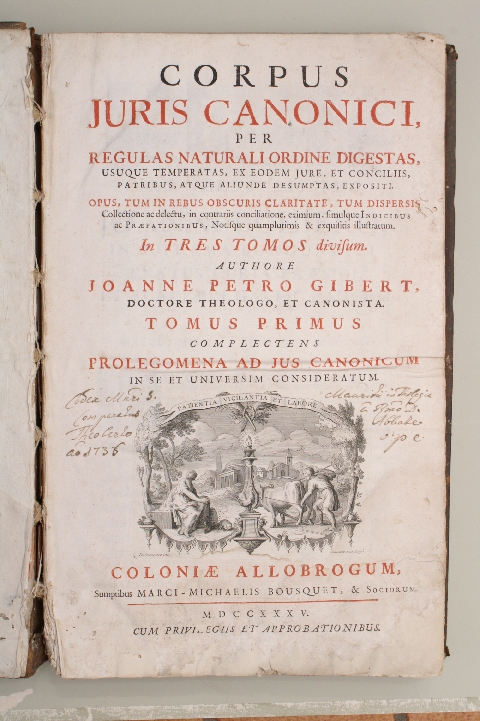 CORPUS
JURIS CANONICI,
PER
REGULAS NATURALI ORDINE DIGESTAS,
USUQUE TEMPERATAS, EX EODEM JURE, ET CONCILIIS,
PATRIBUS, ATQUE ALIUNDE DESUMPTAS, EXPOSITI.
OPUS, TUM IN REBUS OBSCURIS CLARITATE, TUM DISPERSIS
Collectione ac delectu, in contrariis conciliatione, eximium, simulque INDICIBUS
ac PRÆFATIONIBUS, Notisque quamplurimis & exquisitis illustratum.
In TRES TOMOS divisum.
AUTHORE
JOANNE PETRO GIBERT,
DOCTORE THEOLOGO, ET CANONISTA.
TOMUS PRIMUS
COMPLECTENS
PROLEGOMENA AD JUS CANONICUM
IN SE ET UNIVERSIM CONSIDERATUM.
Codex Mari S.
Comparatus
ao 1736
Abbate
PATIENTIA VIGILANTIA ET LABORE
COLONIÆ ALLOBROGUM,
Sumptibus MARCI-MICHAELIS BOUSQUET, & SOCIORUM.
MDCCXXXV.
CUM PRIVILEGIIS ET APPROBATIONIBUS.